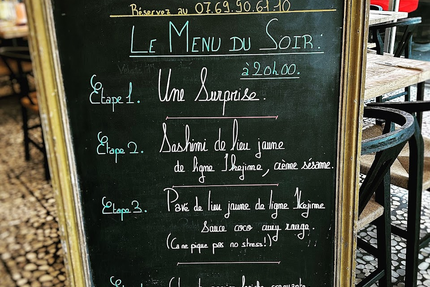 Réservez au 07.69.90.61.10
LE MENU DU SOIR:
à 20h00.
Étape 1. Une Surprise.
Étape 2. Sashimi de lieu jaune
de ligne Ikejime, crème sésame.
Étape 3. Pavé de lieu jaune de ligne Ikejime
Sauce coco curry rouge.
(Ca ne pique pas no stress!)